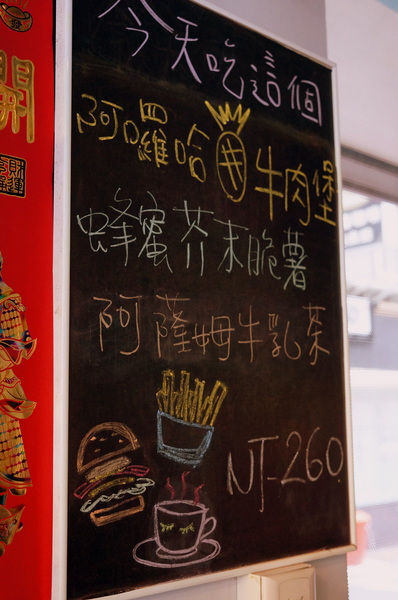 開
今天吃這個
阿囉哈牛肉堡
蜂蜜芥末脆薯
阿薩姆牛乳茶
NT-260